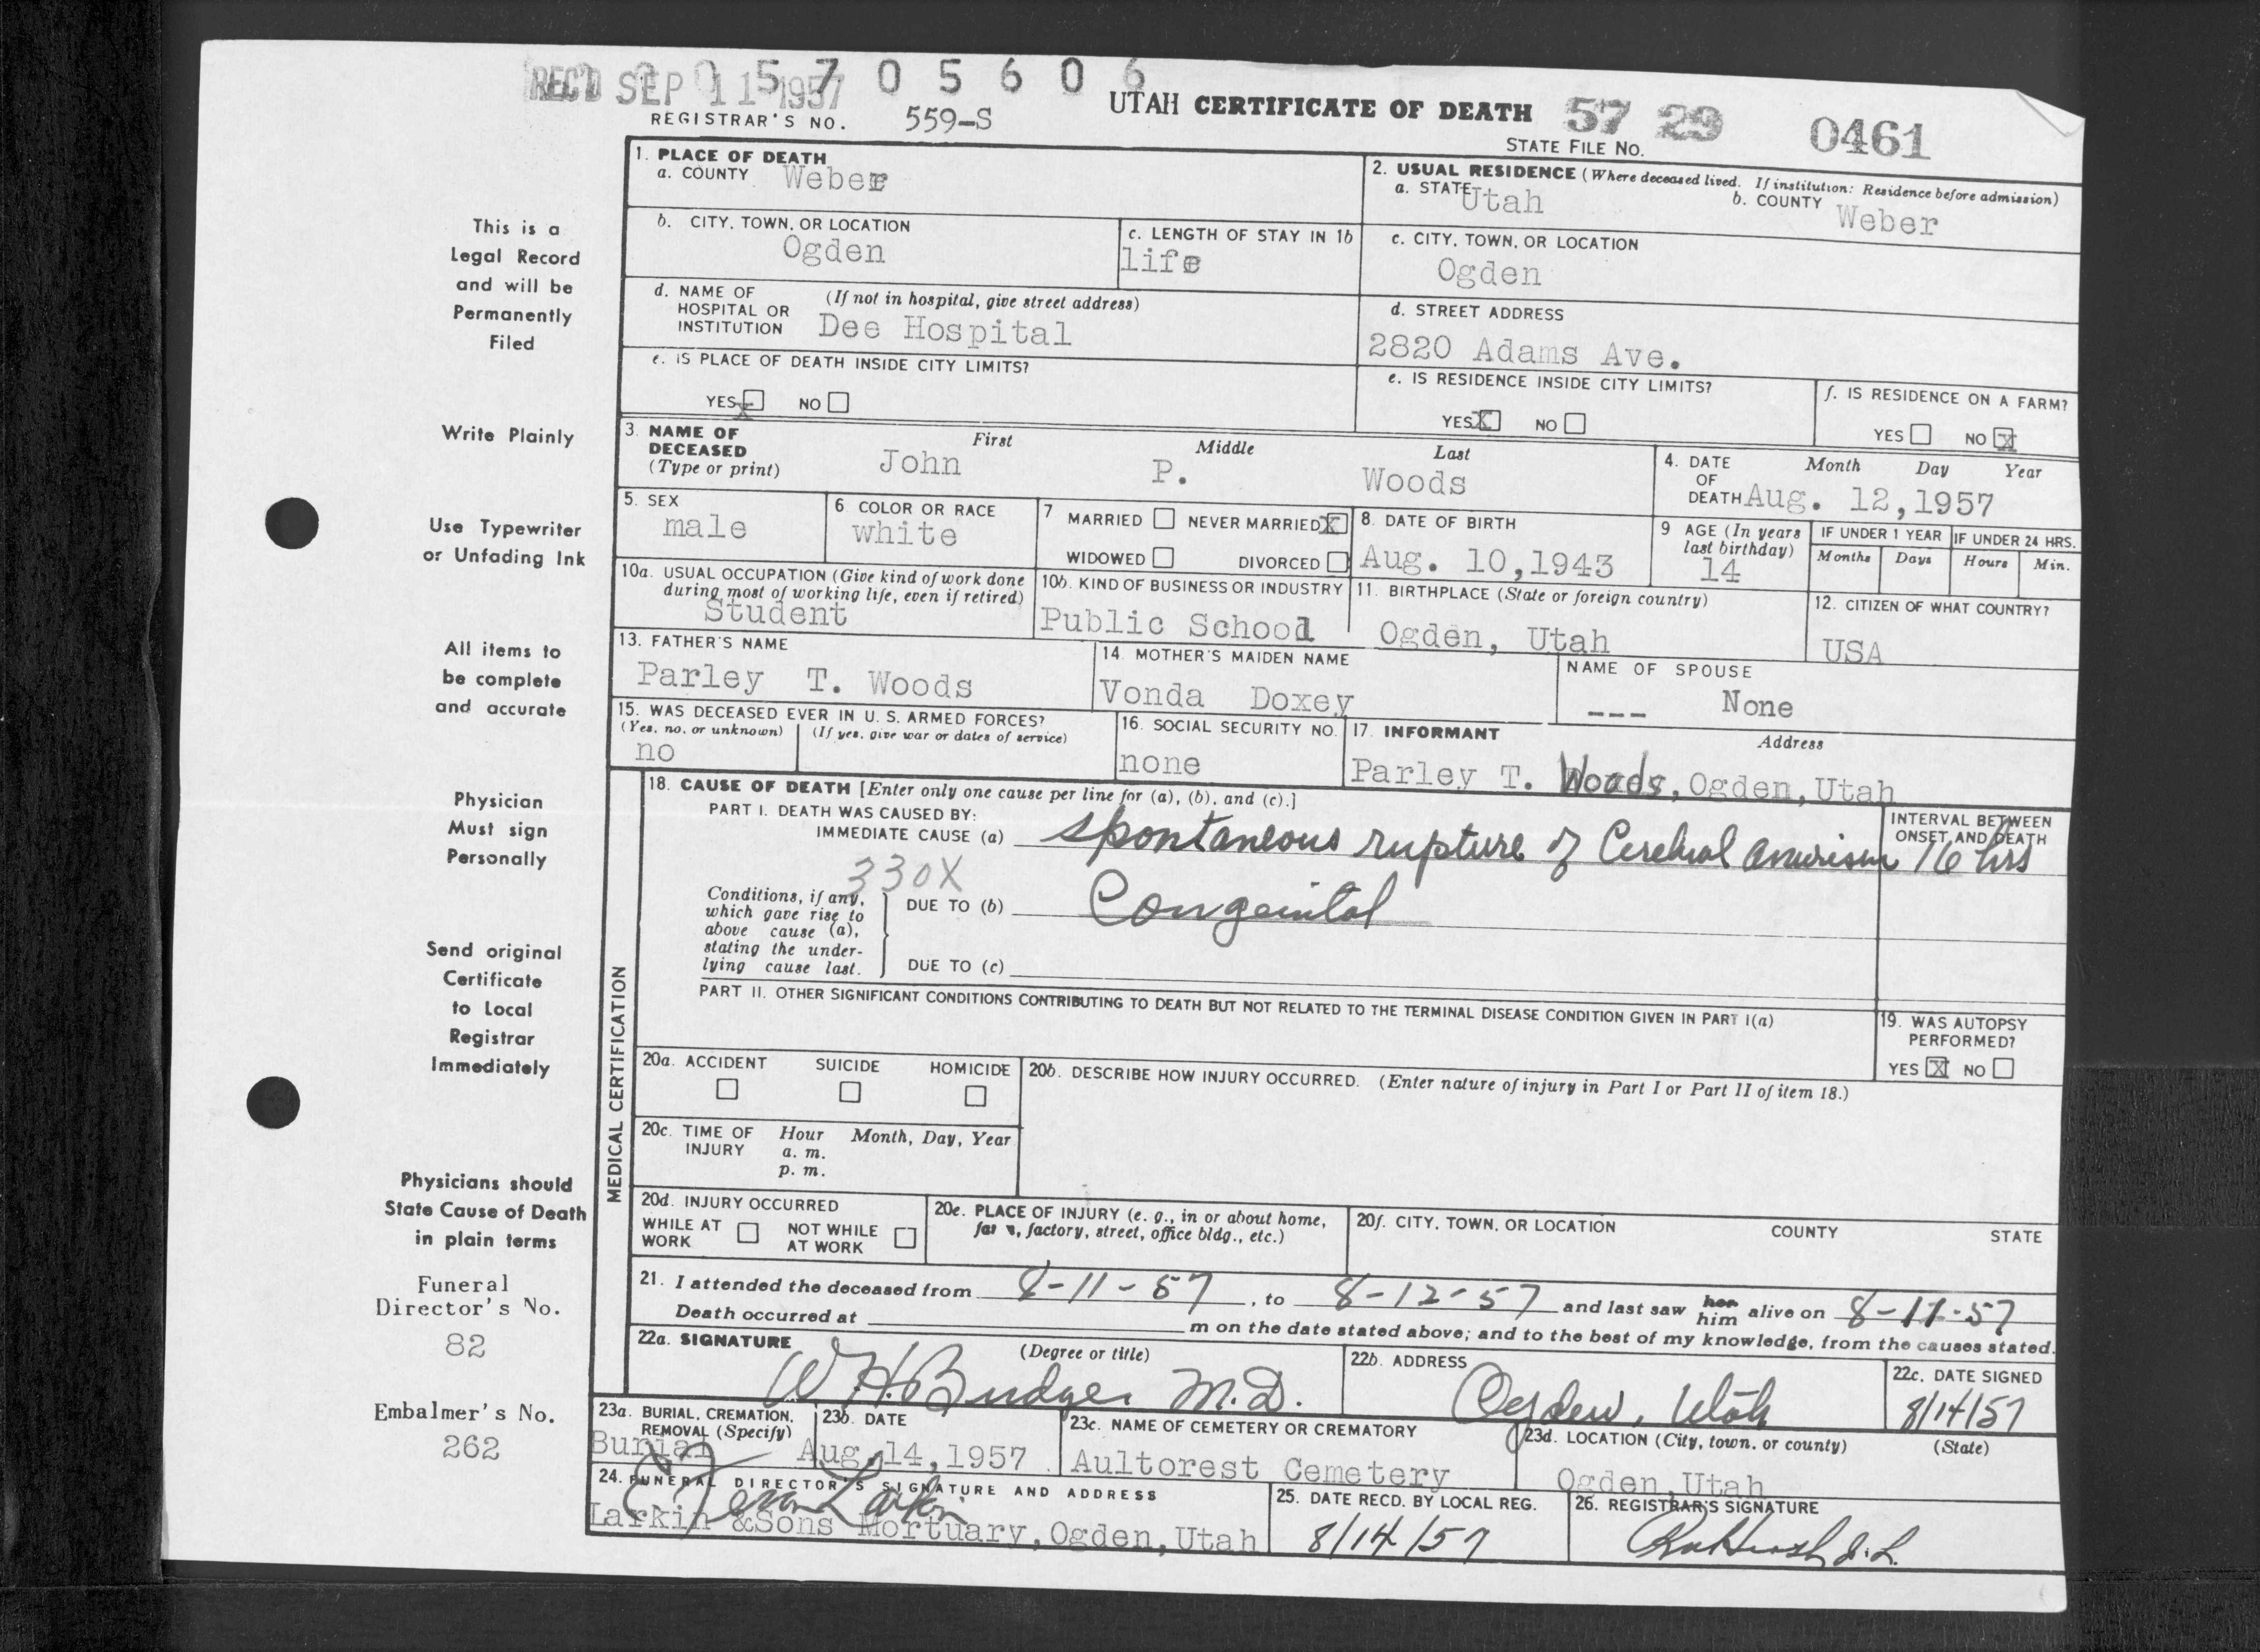 REC'D SEP 11 1957
0 5 7 0 5 6 0 6
REGISTRAR'S NO. 559-S
UTAH CERTIFICATE OF DEATH
57 29 0461
STATE FILE NO.
This is a
Legal Record
and will be
Permanently
Filed
Write Plainly
Use Typewriter
or Unfading Ink
All items to
be complete
and accurate
Physician
Must sign
Personally
Send original
Certificate
to Local
Registrar
Immediately
Physicians should
State Cause of Death
in plain terms
Funeral
Director's No.
82
Embalmer's No.
262
1. PLACE OF DEATH
a. COUNTY Weber
2. USUAL RESIDENCE (Where deceased lived. If institution: Residence before admission)
a. STATE Utah b. COUNTY Weber
b. CITY, TOWN, OR LOCATION
Ogden
c. LENGTH OF STAY IN 1b
life
c. CITY, TOWN, OR LOCATION
Ogden
d. NAME OF HOSPITAL OR INSTITUTION (If not in hospital, give street address)
Dee Hospital
d. STREET ADDRESS
2820 Adams Ave.
e. IS PLACE OF DEATH INSIDE CITY LIMITS?
YES X NO
e. IS RESIDENCE INSIDE CITY LIMITS?
YES X NO
f. IS RESIDENCE ON A FARM?
YES NO X
3. NAME OF DECEASED (Type or print)
First Middle Last
John P. Woods
4. DATE OF DEATH Month Day Year
Aug. 12,1957
5. SEX
male
6 COLOR OR RACE
white
7 MARRIED NEVER MARRIED X
WIDOWED DIVORCED
8. DATE OF BIRTH
Aug. 10,1943
9 AGE (In years last birthday)
14
IF UNDER 1 YEAR
Months Days
IF UNDER 24 HRS.
Hours Min.
10a. USUAL OCCUPATION (Give kind of work done during most of working life, even if retired)
Student
10b. KIND OF BUSINESS OR INDUSTRY
Public School
11. BIRTHPLACE (State or foreign country)
Ogden, Utah
12. CITIZEN OF WHAT COUNTRY?
USA
13. FATHER'S NAME
Parley T. Woods
14 MOTHER'S MAIDEN NAME
Vonda Doxey
NAME OF SPOUSE
--- None
15. WAS DECEASED EVER IN U. S. ARMED FORCES?
(Yes, no, or unknown) (If yes, give war or dates of service)
no
16. SOCIAL SECURITY NO.
none
17. INFORMANT Address
Parley T. Woods, Ogden, Utah
MEDICAL CERTIFICATION
18. CAUSE OF DEATH [Enter only one cause per line for (a), (b), and (c).]
PART I. DEATH WAS CAUSED BY:
IMMEDIATE CAUSE (a) spontaneous rupture of Cerebral Aneurism
INTERVAL BETWEEN ONSET AND DEATH
16 hrs
330X
Conditions, if any, which gave rise to above cause (a), stating the underlying cause last.
DUE TO (b) Congenital
DUE TO (c)
PART II. OTHER SIGNIFICANT CONDITIONS CONTRIBUTING TO DEATH BUT NOT RELATED TO THE TERMINAL DISEASE CONDITION GIVEN IN PART I(a)
19. WAS AUTOPSY PERFORMED?
YES X NO
20a. ACCIDENT SUICIDE HOMICIDE
20b. DESCRIBE HOW INJURY OCCURRED. (Enter nature of injury in Part I or Part II of item 18.)
20c. TIME OF INJURY Hour Month, Day, Year
a. m.
p. m.
20d. INJURY OCCURRED
WHILE AT WORK NOT WHILE AT WORK
20e. PLACE OF INJURY (e. g., in or about home, farm, factory, street, office bldg., etc.)
20f. CITY, TOWN, OR LOCATION COUNTY STATE
21. I attended the deceased from 8-11-57, to 8-12-57 and last saw her him alive on 8-11-57
Death occurred at m on the date stated above; and to the best of my knowledge, from the causes stated.
22a. SIGNATURE (Degree or title)
W H Budge M.D.
22b. ADDRESS
Ogden, Utah
22c. DATE SIGNED
8/14/57
23a. BURIAL, CREMATION, REMOVAL (Specify)
Burial
23b. DATE
Aug.14,1957
23c. NAME OF CEMETERY OR CREMATORY
Aultorest Cemetery
23d. LOCATION (City, town, or county) (State)
Ogden,Utah
24. FUNERAL DIRECTOR'S SIGNATURE AND ADDRESS
Larkin
Larkin &Sons Mortuary,Ogden,Utah
25. DATE RECD. BY LOCAL REG.
8/14/57
26. REGISTRAR'S SIGNATURE